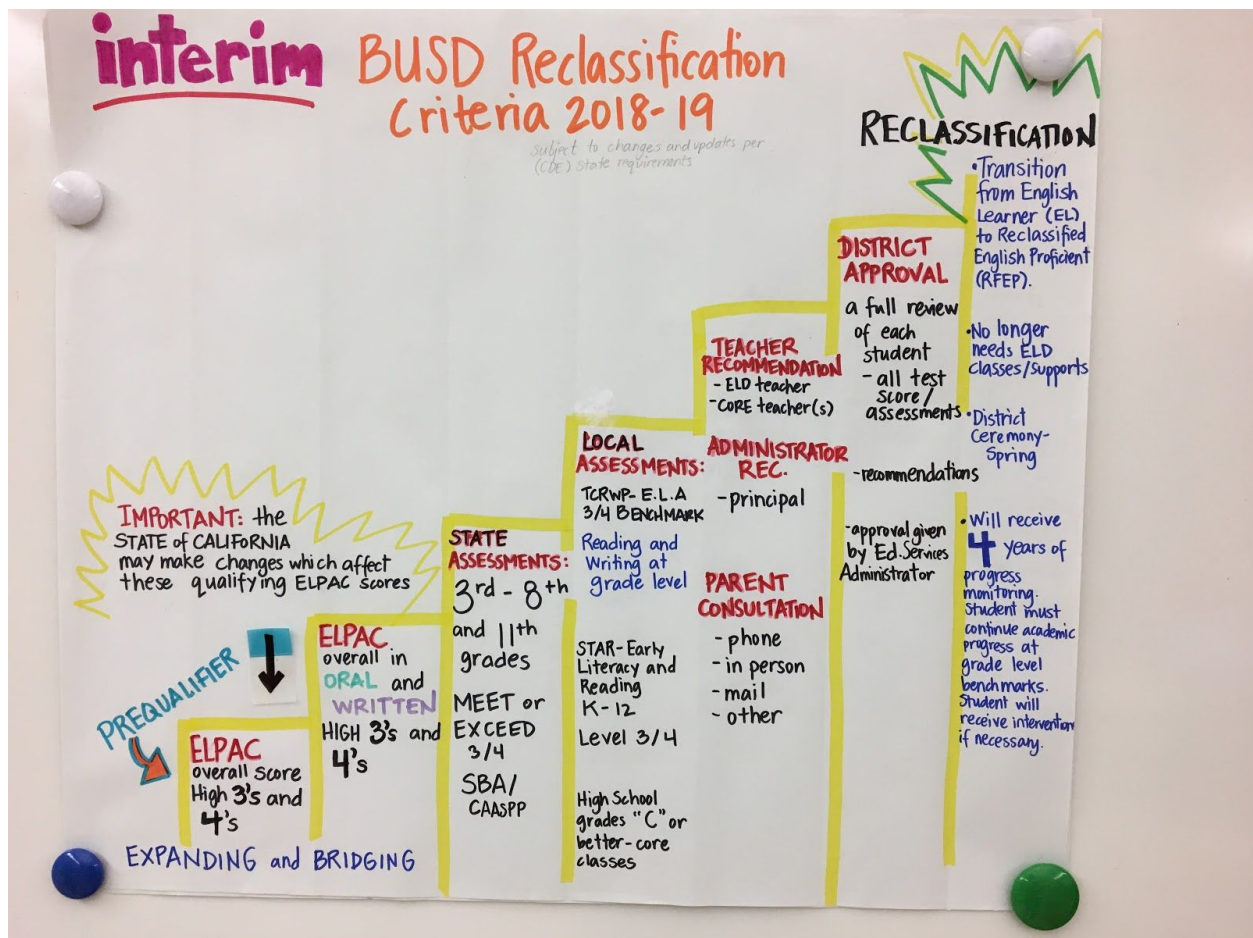 interim
BUSD Reclassification
Criteria 2018-19
subject to changes and updates per
(CDE) State requirements
IMPORTANT: the
STATE of CALIFORNIA
may make changes which affect
these qualifying ELPAC scores
PREQUALIFIER
ELPAC
overall score
High 3's and
4's
EXPANDING and BRIDGING
ELPAC
overall in
ORAL and
WRITTEN
HIGH 3's and
4's
STATE
ASSESSMENTS:
3rd - 8th
and 11th
grades
MEET or
EXCEED
3/4
SBA/
CAASPP
LOCAL
ASSESSMENTS:
TCRWP- E.L.A
3/4 BENCHMARK
Reading and
Writing at
grade level
STAR-Early
Literacy and
Reading
K-12
Level 3/4
High School
grades "C" or
better-core
classes
TEACHER
RECOMMENDATION
- ELD teacher
- CORE teacher(s)
ADMINISTRATOR
REC.
- principal
PARENT
CONSULTATION
- phone
- in person
- mail
- other
DISTRICT
APPROVAL
a full review
of each
student
- all test
score/
assessments
- recommendations
- approval given
by Ed. Services
Administrator
RECLASSIFICATION
• Transition
from English
Learner (EL)
to Reclassified
English Proficient
(RFEP).
• No longer
needs ELD
classes/supports
• District
Ceremony-
Spring
• Will receive
4 years of
progress
monitoring.
Student must
continue academic
progress at
grade level
benchmarks.
Student will
receive intervention
if necessary.